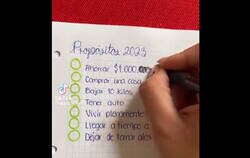 Propositos 2023
Ahorrar $1.000.
Comprar una casa
Bajar 10 kilos
Tener auto
Vivir plenamente
Llegar a tiempo a
Dejar de tomar